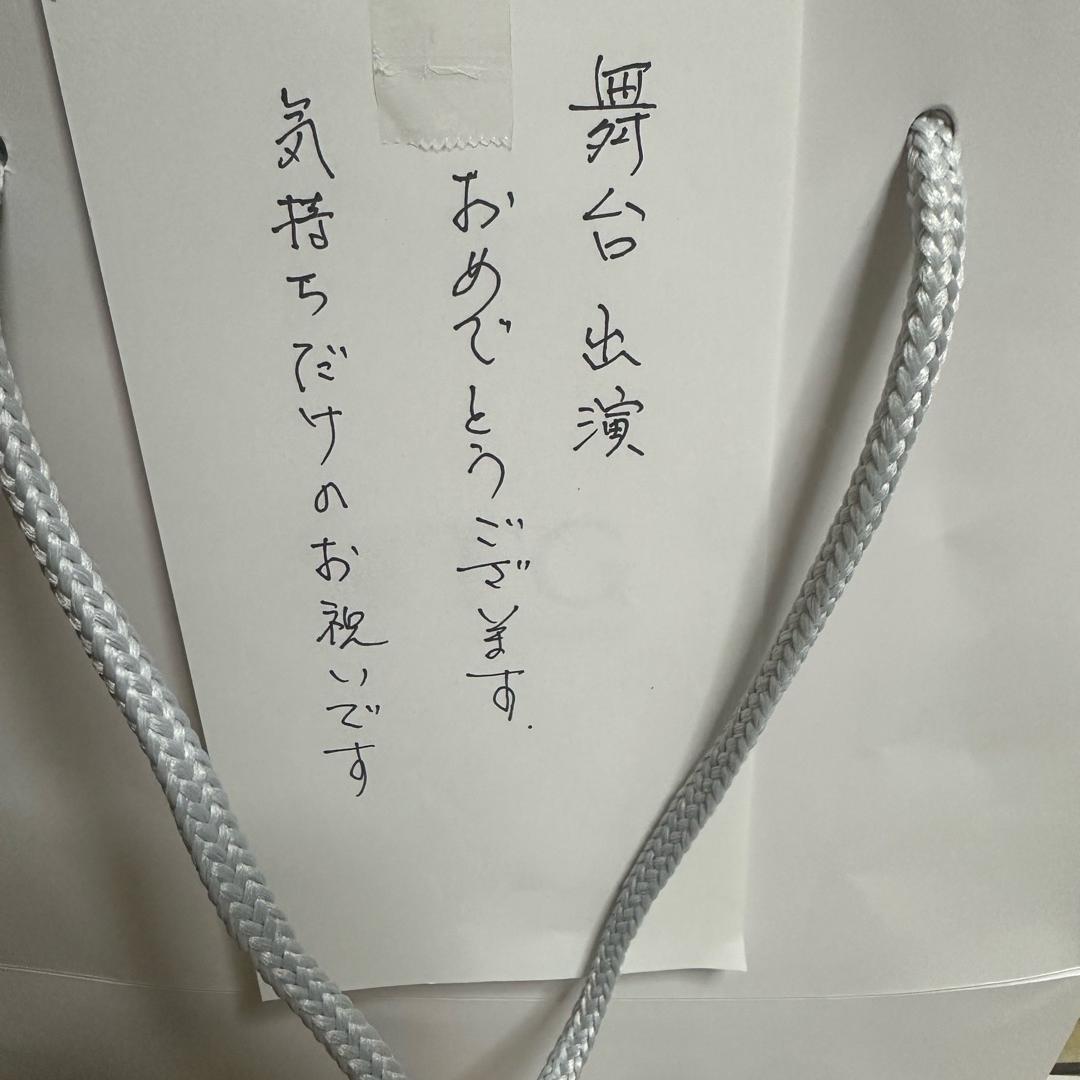 舞台出演
おめでとうございます.
気持ちだけのお祝いです